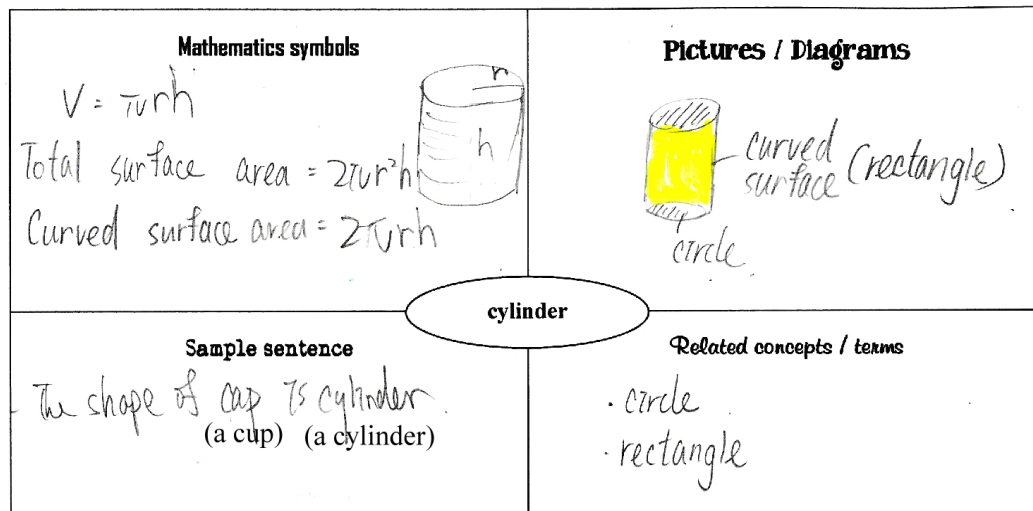 Mathematics symbols
V = πrh
r
h
Total surface area = 2πr²h
Curved surface area = 2πrh
Pictures / Diagrams
curved
surface (rectangle)
circle
cylinder
Sample sentence
- The shape of cap is cylinder.
(a cup) (a cylinder)
Related concepts / terms
· circle
· rectangle